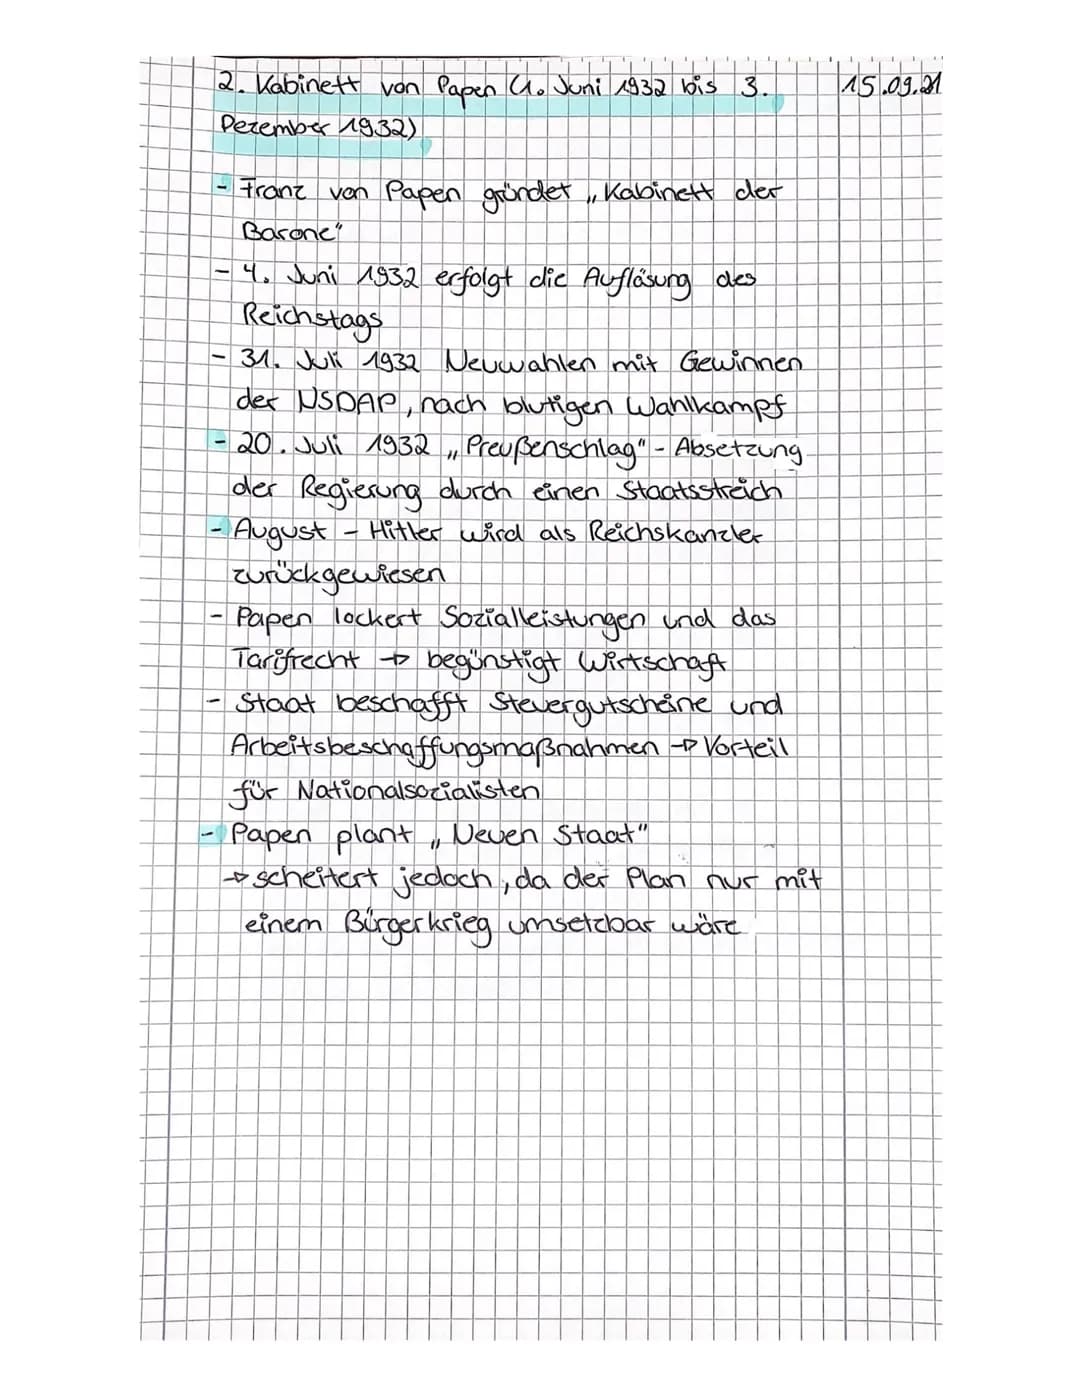 2. Kabinett von Papen (1. Juni 1932 bis 3. 15.09.21
Dezember 1932)
- Franz von Papen gründet „Kabinett der
Barone"
- 4. Juni 1932 erfolgt die Auflösung des
Reichstags
- 31. Juli 1932 Neuwahlen mit Gewinnen
der NSDAP, nach blutigen Wahlkampf
- 20. Juli 1932 „Preußenschlag" - Absetzung
der Regierung durch einen Staatsstreich
- August - Hitler wird als Reichskanzler
zurückgewiesen
- Papen lockert Sozialleistungen und das
Tarifrecht → begünstigt Wirtschaft
- Staat beschafft Steuergutscheine und
Arbeitsbeschaffungsmaßnahmen → Vorteil
für Nationalsozialisten
- Papen plant „Neuen Staat"
→ scheitert jedoch, da der Plan nur mit
einem Bürgerkrieg umsetzbar wäre